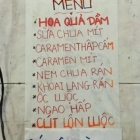 MENU
• HOA QUẢ DẦM
• SỮA CHUA MÍT
• CARAMEN THẬP CẨM
• CARAMEN MÍT
• NEM CHUA RÁN
• KHOAI LANG RÁN
• ỐC LUỘC
• NGAO HẤP
• ÚT LỘN LUỘC